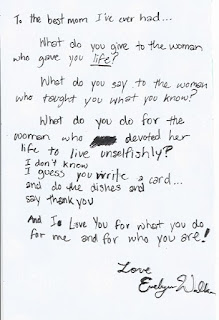 To the best mom I've ever had...
What do you give to the woman
who gave you life?
What do you say to the woman
who taught you what you know?
What do you do for the
woman who devoted her
life to live unselfishly?
I don't know
I guess you write a card...
and do the dishes and
say thank you
And I Love You for what you do
for me and for who you are!
Love
Evelyn